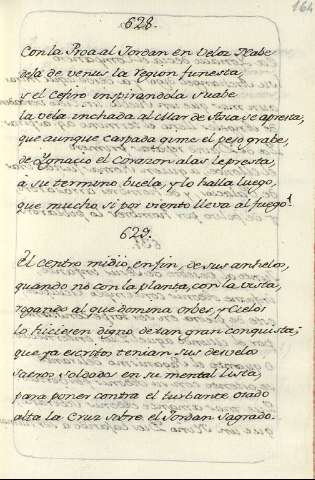 164
628.
Con la Proa al Jordan en Veloz Nabe
dexa de venus la region funesta,
y el Cefiro inspirandola suabe
la vela inchada al Mar de Siria se apresta,
que aunque cargada gime el peso grabe,
de Ignacio el Corazon alas le presta,
a su termino buela, y lo halla luego,
que mucho, si por viento lleva al fuego!
629.
El centro midio, enfin, de sus anhelos,
quando nó con la planta, con la vista,
rogando al que domina orbes, y Cielos
lo hiciesen digno de tan gran conquista;
que ya escritos tenian sus desvelos
sacros soldados en su mental lista,
para poner contra el turbante osado
alta la Cruz sobre el Jordan Sagrado.